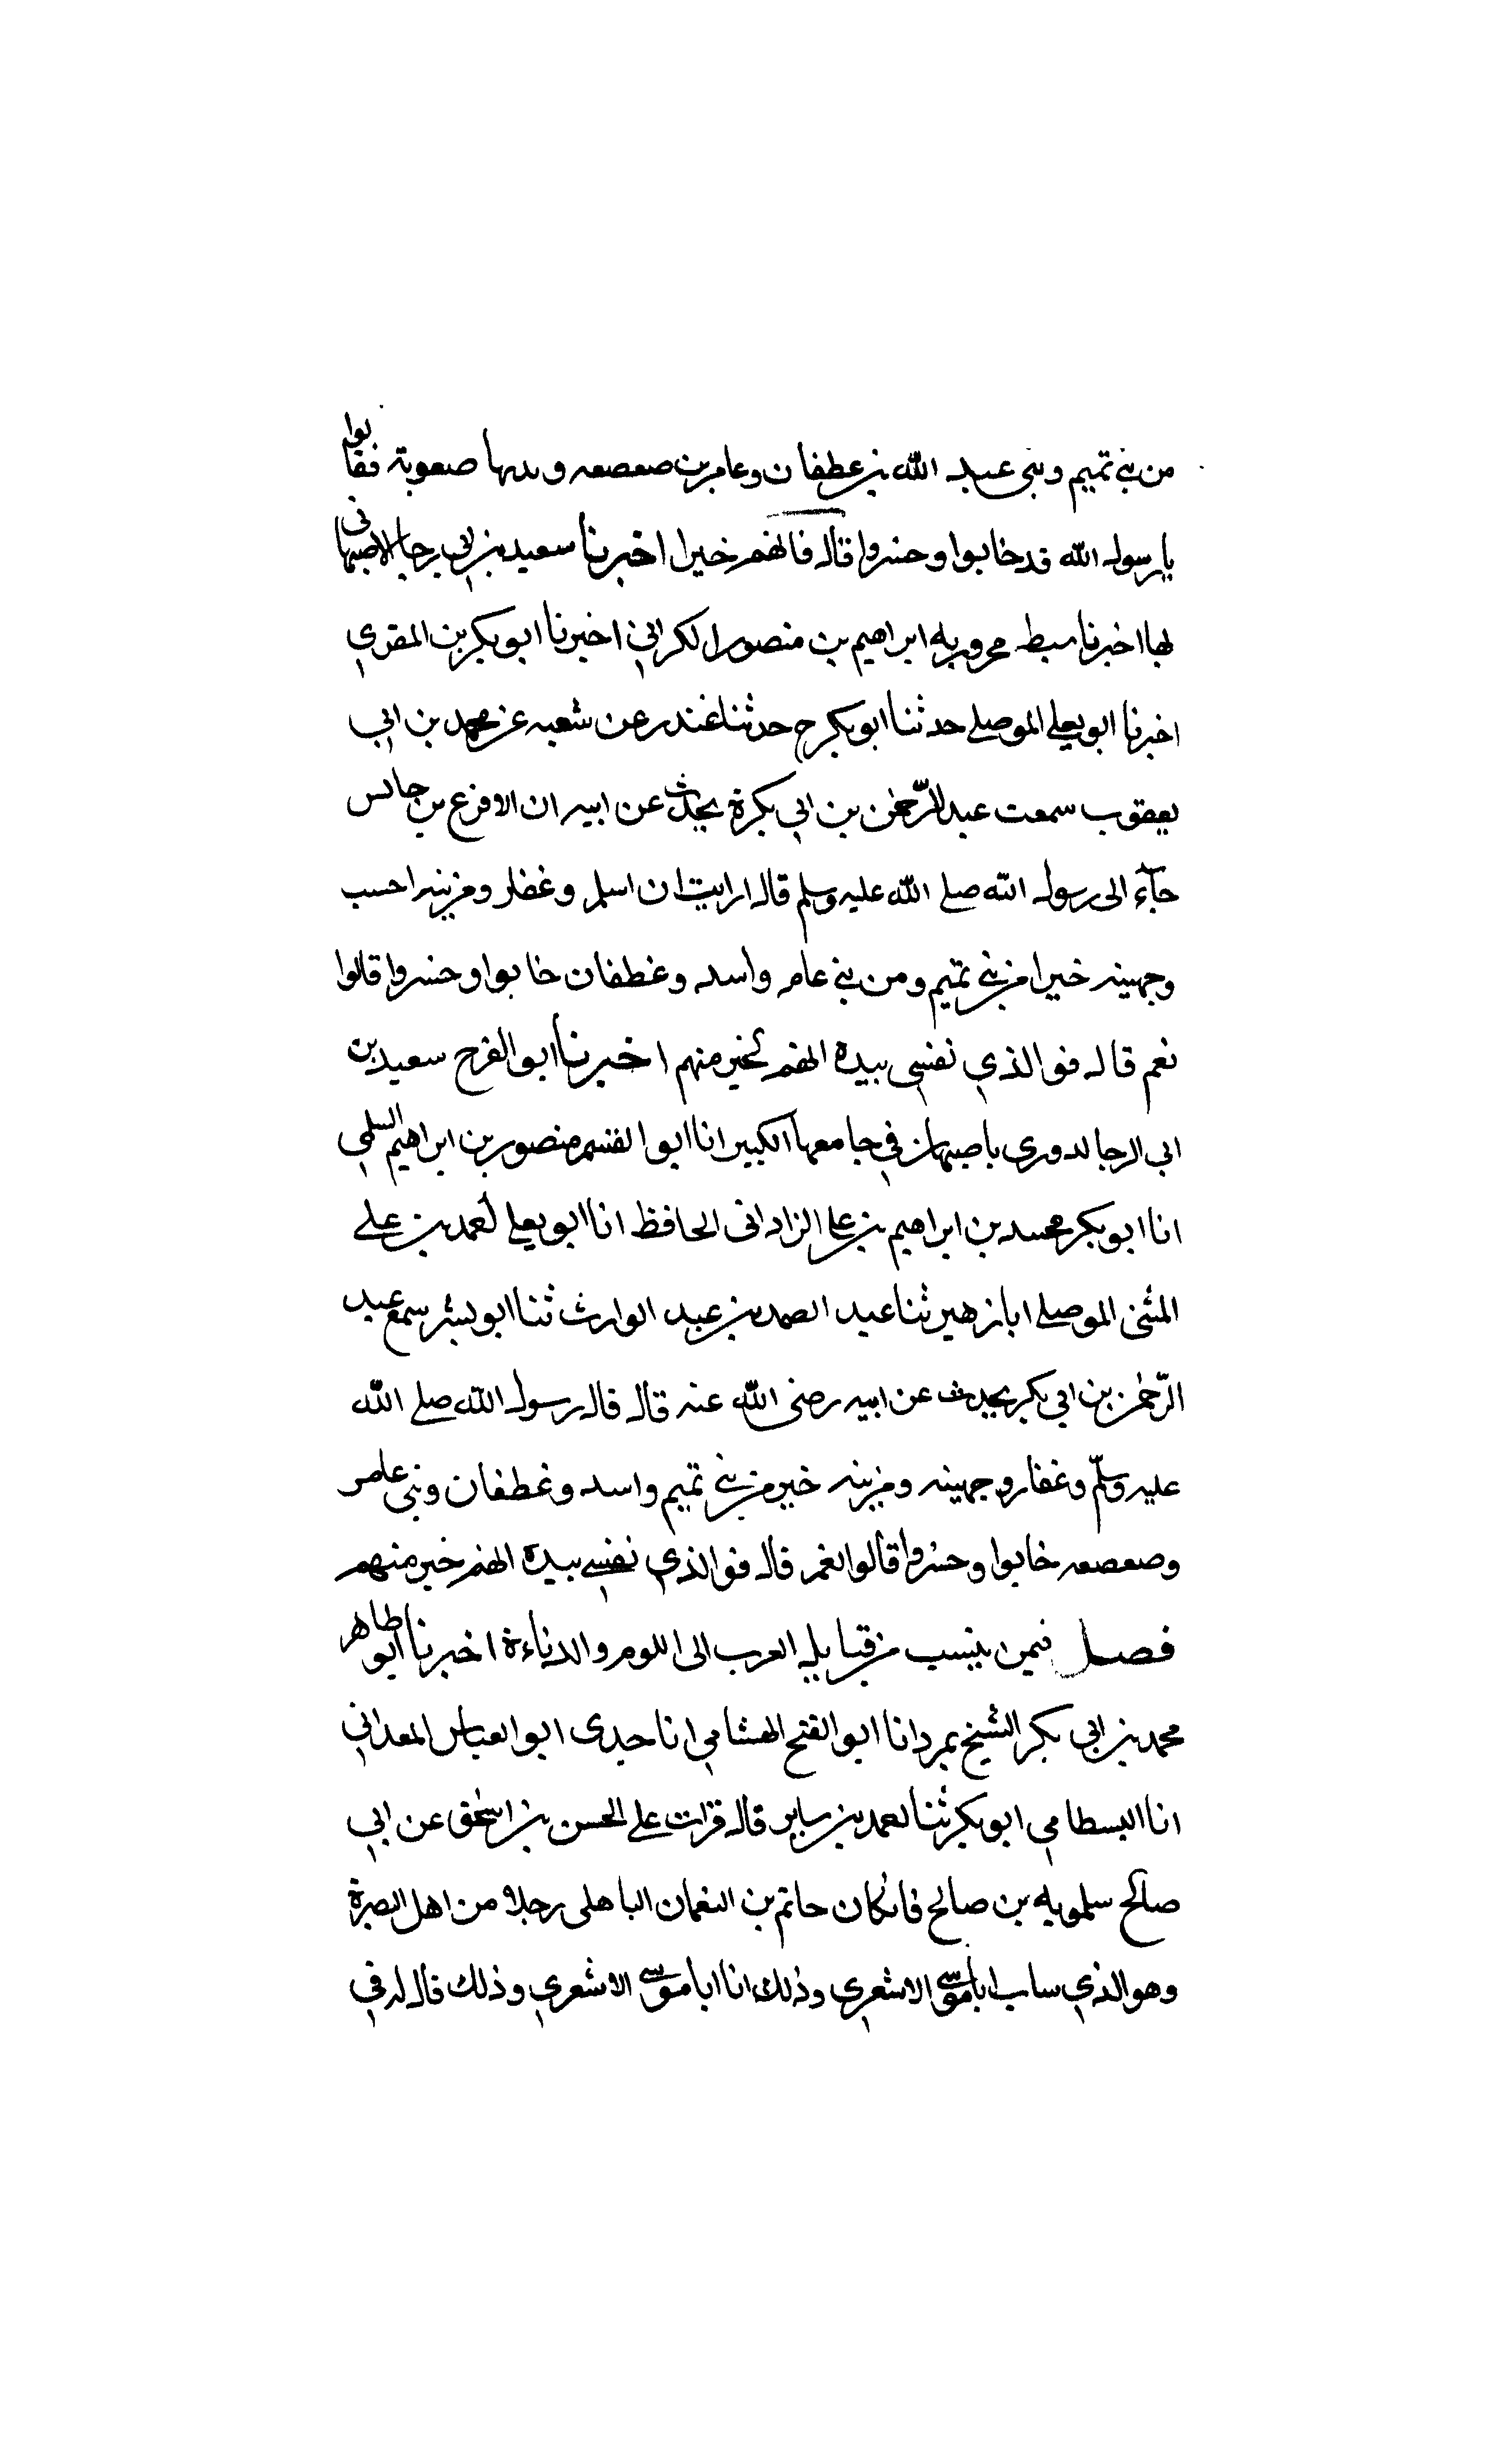 من بني تميم وبني عبد الله بن عطفان وعامر بن صعصعه ومد بها صعوبة فقالوا
يا رسول الله قد خابوا وخسروا قال فانهم خيرا اخبرنا سعيد بن ابي رجا الاصبهاني
بها اخبرنا سبط محرويه ابراهيم بن منصور الكراني اخبرنا ابو بكر بن المقري
اخبرنا ابو يعلي الموصلي حدثنا ابو بكر ح حدثنا غندر عن شعبه عن محمد بن ابي
يعقوب سمعت عبد الرحمن بن ابي بكرة يحدث عن ابيه ان الاقرع بن حابس
جآء الى رسول الله صلى الله عليه وسلم قال ارايت ان اسلم وغفار ومزينه احسب
وجهينه خيرا من بني تميم ومن بني عامر واسد وغطفان خابوا وخسروا قالوا
نعم قال فو الذي نفسي بيده انهم لخير منهم اخبرنا ابو الفرح سعيد بن
ابي الرجا لدوري باصبهان في جامعها الكبير انا ابو القسم منصور بن ابراهيم السلمي
انا ابو بكر محمد بن ابراهيم بن علي الزاداني الحافظ انا ابو يعلي احمد بن علي
المثنى الموصلي ابا زهير ثنا عبد الصمد بن عبد الوارث ثنا ابو بشر سمع عبد
الرحمن بن ابي بكر يحدث عن ابيه رضى الله عنه قال قال رسول الله صلى الله
عليه وسلم وغفار وجهينه ومزينه خير من بني تميم واسد وغطفان وبني عامر
وصعصعه خابوا وخسروا قالوا نعم قال فو الذي نفسي بيده انهم خير منهم
فصل فيمن ينسب من قبايل العرب الى اللوم والدناءة اخبرنا ابو طاهر
محمد بن ابي بكر الشيخ بمرد انا ابو الفتح الهشامي انا جدى ابو العباس المعداني
انا البسطامي ابو بكر ثنا احمد بن سيار قال قرات على الحسن بن اسحق عن ابي
صالح سلمويه بن صالح قال كان حاتم بن النعمان الباهلى رجلا من اهل البصرة
وهو الذي ساب ابا موسى الاشعري وذلك انا ابا موسى الاشعري وذلك قال له في